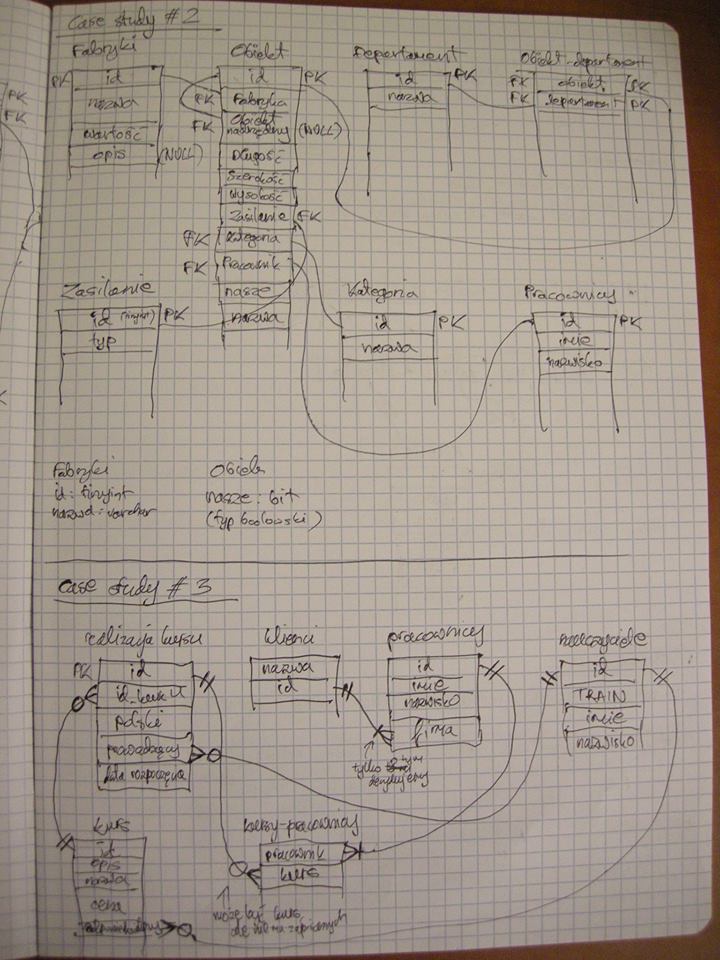 Case study #2
Fabryki
PK id
nazwa
wartość
opis (NULL)
Obiekt
id PK
FK Fabryka
FK Obiekt nadrzędny (NULL)
Długość
Szerokość
Wysokość
Zasilanie FK
FK Kategoria
FK Pracownik
nasze
nazwa
Departament
id PK
nazwa
Obiekt-departament
FK obiekt PK
FK departament PK
Zasilanie
id (tinyint) PK
typ
Kategoria
id PK
nazwa
Pracownicy
id PK
imie
nazwisko
Fabryki
id: tinyint
nazwa: varchar
Obiekt
nasze: bit
(typ boolowski)
Case study #3
realizacja kursu
PK id
id_kursu
polskie
prowadzący
data rozpoczęcia
klienci
nazwa
id
pracownicy
id
imie
nazwisko
firma
tylko tym
nauczyciele
id
TRAIN
imie
nazwisko
kurs
id
opis
nazwa
cena
kursy-pracownicy
pracownik
kurs
może być kurs,
ale nie ma zapisanych